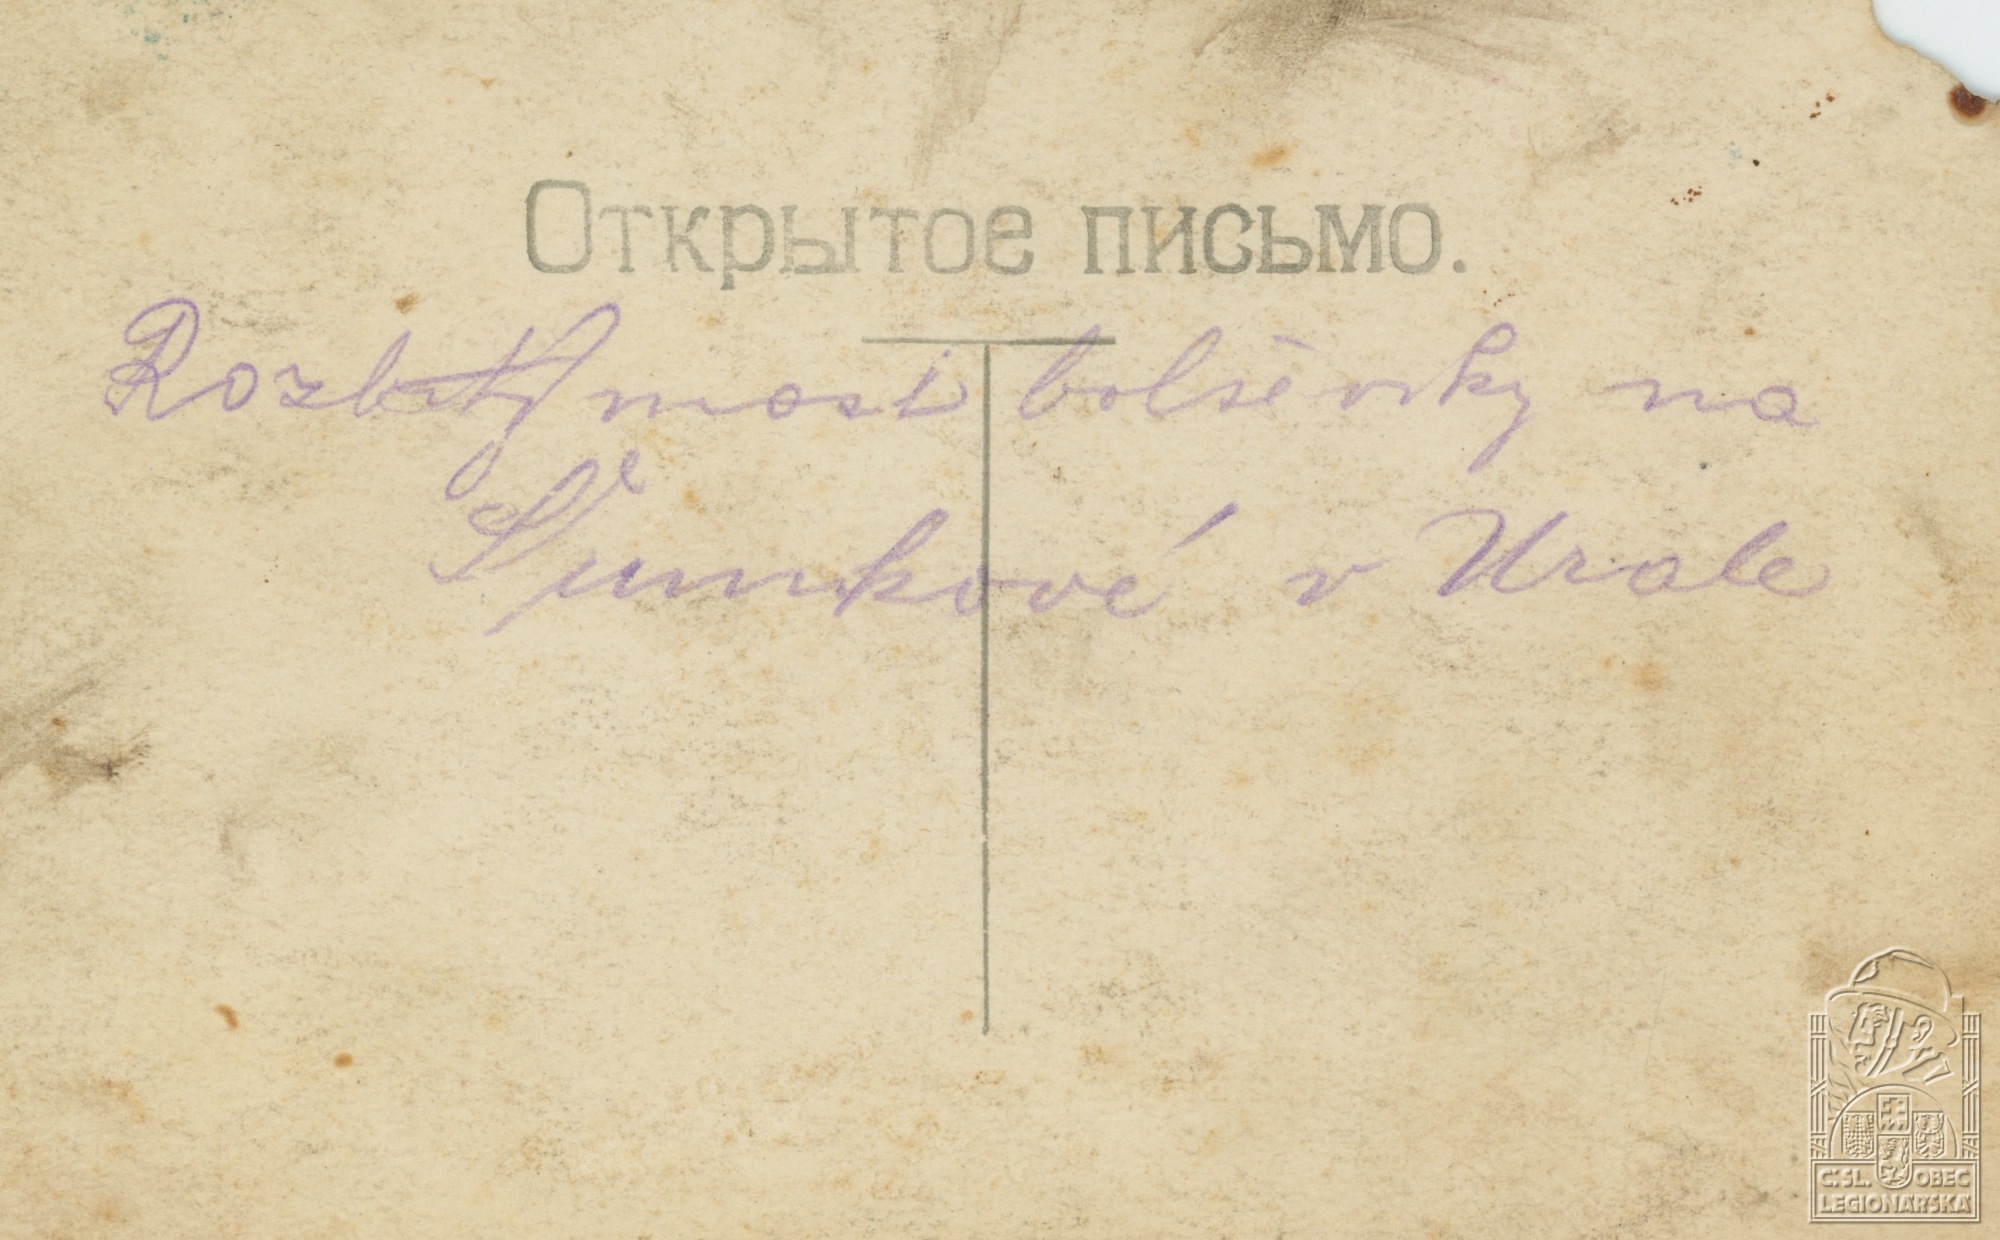 Открытое письмо.
Rozbitý most bolševiky na
Šumkové v Urale
Č. SL. OBEC
LEGIONÁŘSKÁ